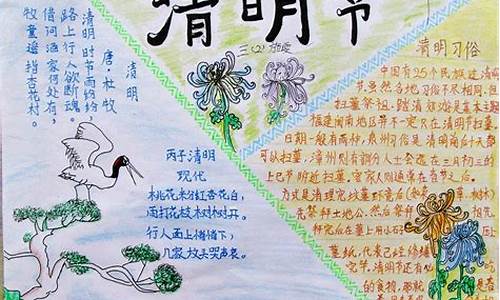 清明节
三(2)
清明
唐·杜牧
清明时节雨纷纷，
路上行人欲断魂。
借问酒家何处有，
牧童遥指杏花村。
丙子清明
现代
桃花来红杏花白，
雨打花枝树树开。
行人面上情情下，
几家坟头哭声哀。
清明习俗
中国有25个民族过清明
节，虽然各地习俗不尽相同，但
扫墓祭祖、踏清郊游是基本主
福建闽南地区并不一定只在清明节扫墓，
日期一般有两种，泉州习俗是清明前后十天都
可以扫墓，漳州则有部分人士会选在三月初三的
上巳节附近扫墓，客家人则通常在春节之后。
方式是清理完坟墓环境后
先祭拜土地公，然后祭拜
拜完后在墓上用小石
墓纸，代表已经修缮
完节，清明节还有
的食物，那就